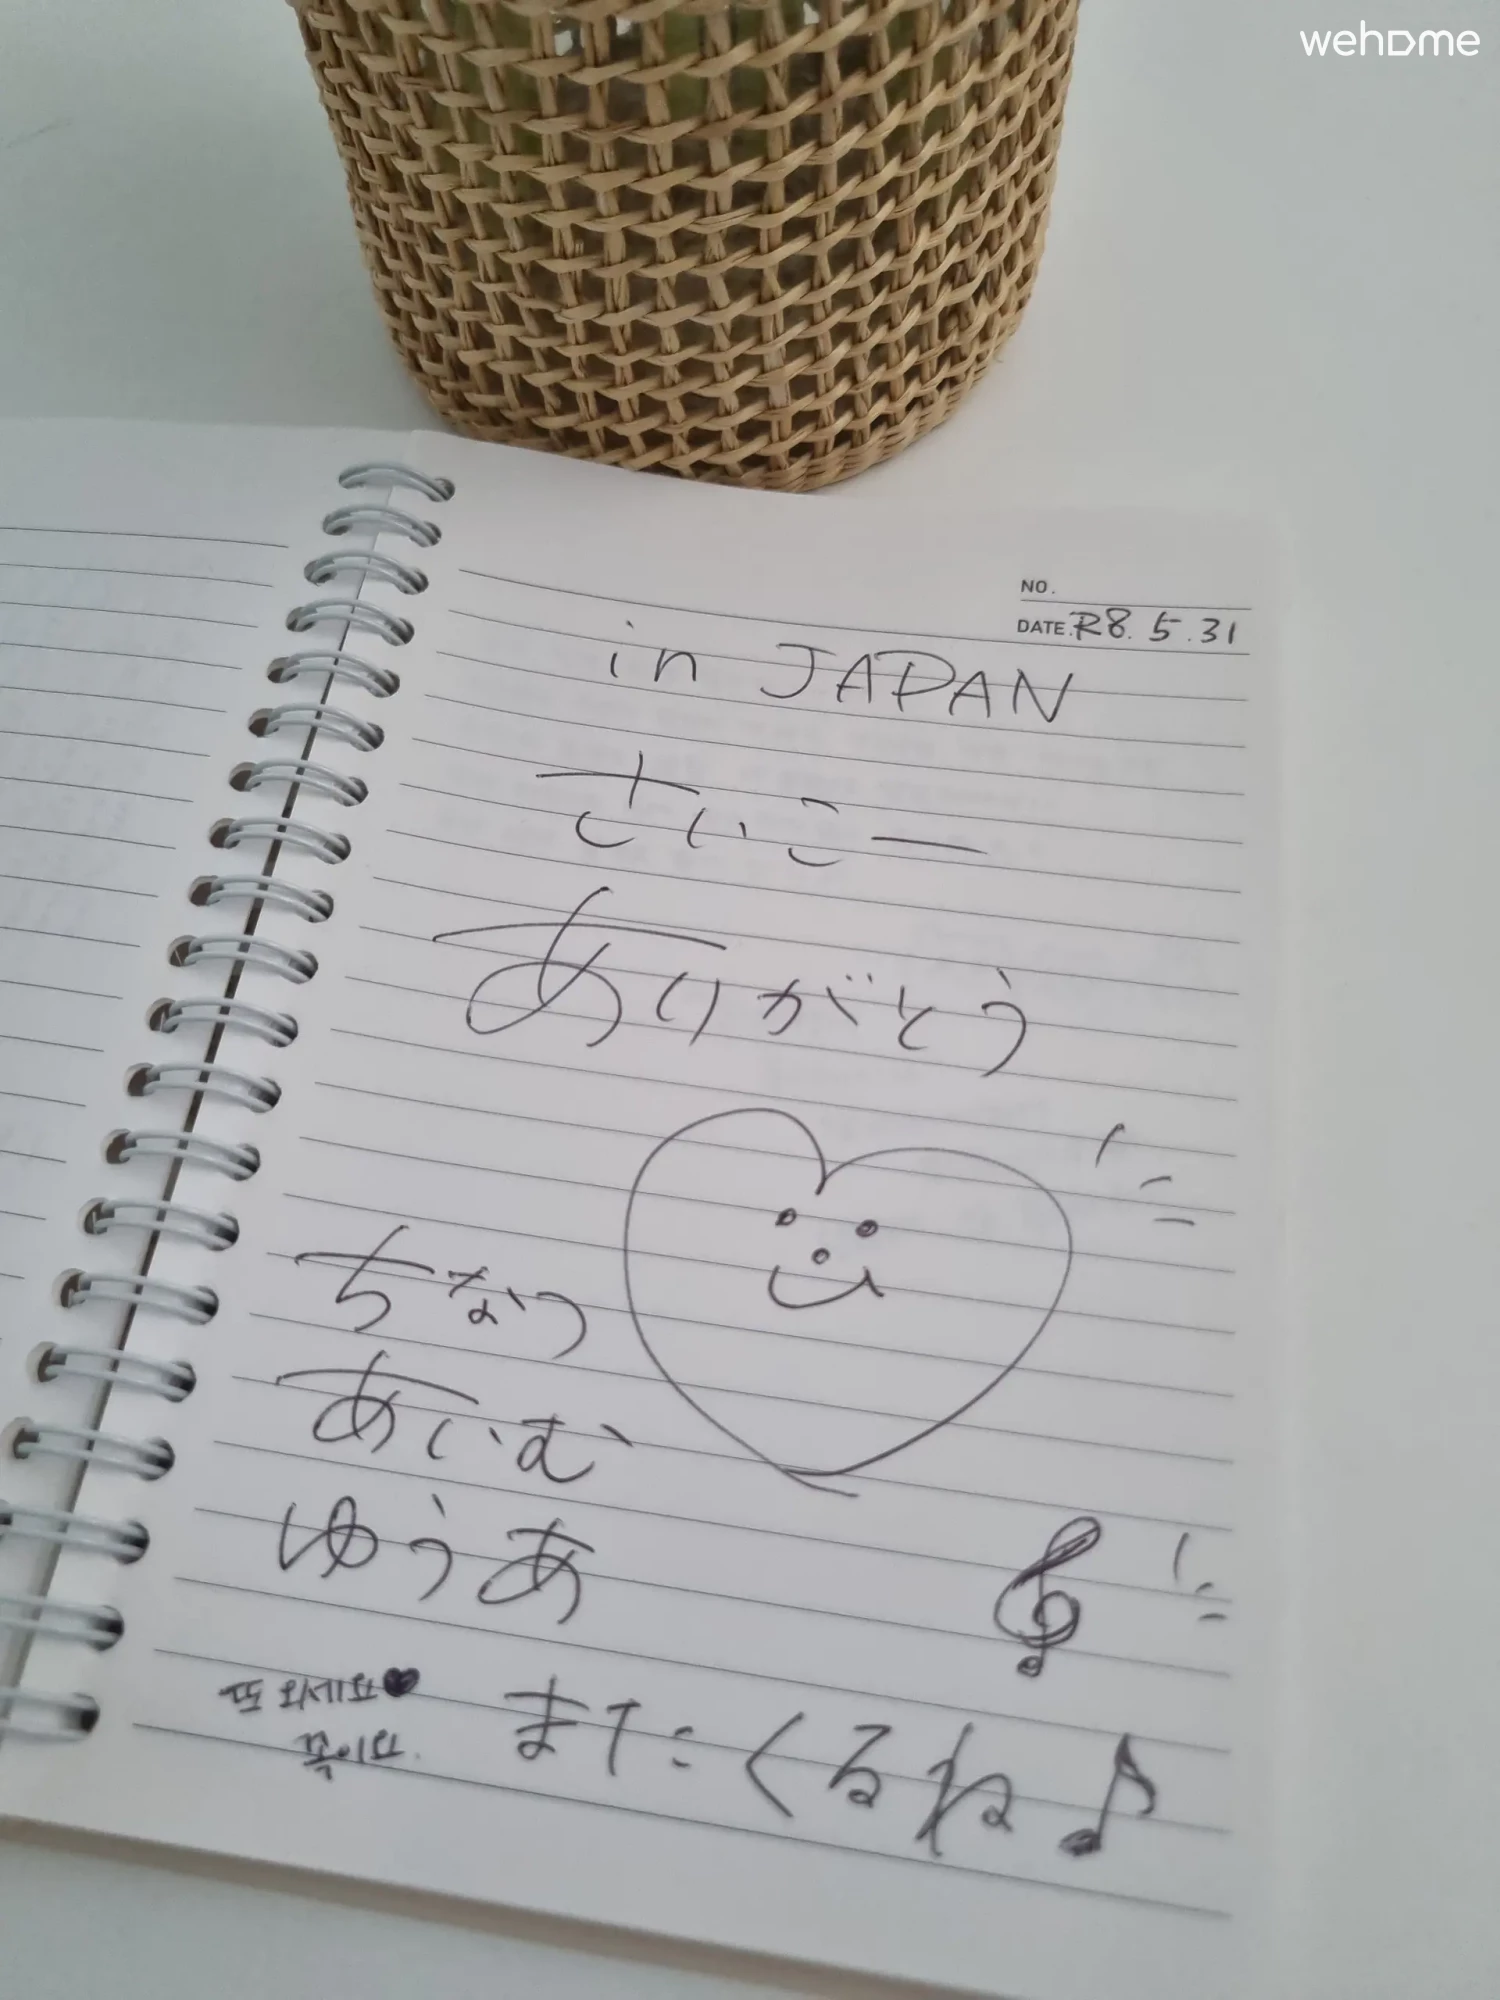 wehome
NO.
DATE. R8. 5. 31
in JAPAN
さいこー
ありがとう
ちなつ
あいむ
ゆうあ
또 오세요♥
꼭이요.
またくるね♪